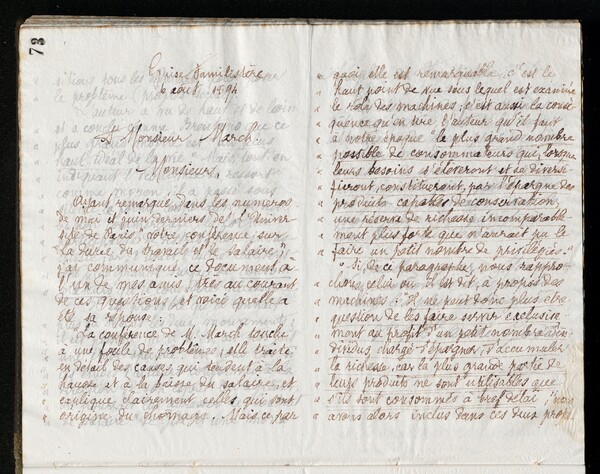 73
Guise Familistère
6 août 1894
A Monsieur March
Monsieur,
Ayant remarqué, dans les numéros
de mai et juin derniers de l'Univer-
sité de Paris, votre conférence sur
"La durée du travail et le salaire",
j'ai communiqué ce document à
l'un de mes amis très au courant
de ces questions, et voici quelle a
été sa réponse:
"La conférence de M. March touche
à une foule de problèmes; elle traite
en détail des causes qui tendent à la
hausse et à la baisse du salaire, et
explique clairement celles qui sont
origine du chômage. Mais ce par
" quoi elle est remarquable, c'est le
" haut point de vue sous lequel est examiné
" le rôle des machines; c'est aussi la consé-
" quence qu'en tire l'auteur qu'il faut
" à notre époque "le plus grand nombre
" possible de consommateurs qui, lorsque
" leurs besoins s'élèveront et se diversi-
" fieront, constitueront, par l'épargne des
" produits capables de conservation,
" une réserve de richesse incomparable-
" ment plus forte que n'aurait pu le
" faire un petit nombre de privilégiés."
" Si de ce paragraphe, nous rappro-
" chons celui où il est dit, à propos des
" machines: "Il ne peut donc plus être
" question de les faire servir exclusive-
" ment au profit d'un petit nombre d'in-
" dividus chargé d'épargner, d'accumuler
" la richesse, car la plus grande partie de
" leurs produits ne sont utilisables que
" s'ils sont consommés à bref délai", nous
" avons alors inclus dans ces deux propo